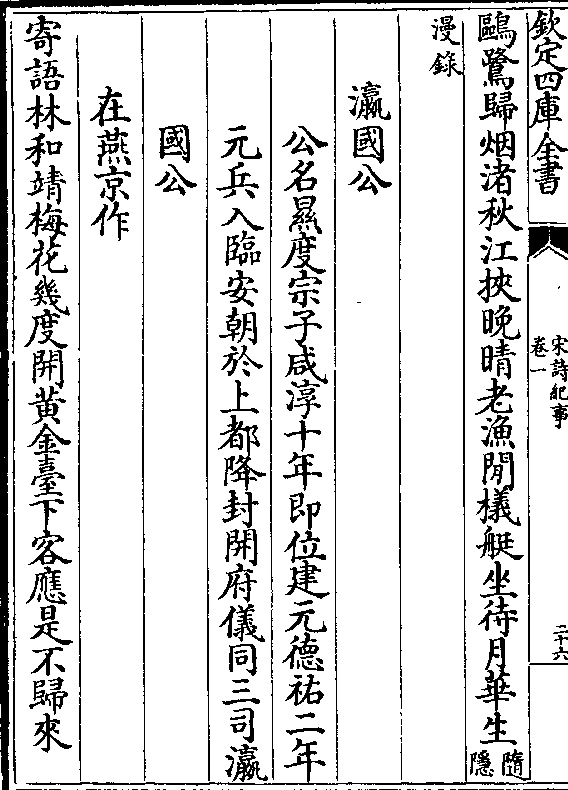 欽定四庫全書
宋詩紀事
卷一
二十六
鷗鷺歸烟渚秋江挾晚晴老漁閒檥艇坐待月華生隨隱
漫錄
瀛國公
公名㬎度宗子咸淳十年即位建元德祐二年
元兵入臨安朝於上都降封開府儀同三司瀛
國公
在燕京作
寄語林和靖梅花幾度開黃金臺下客應是不歸來